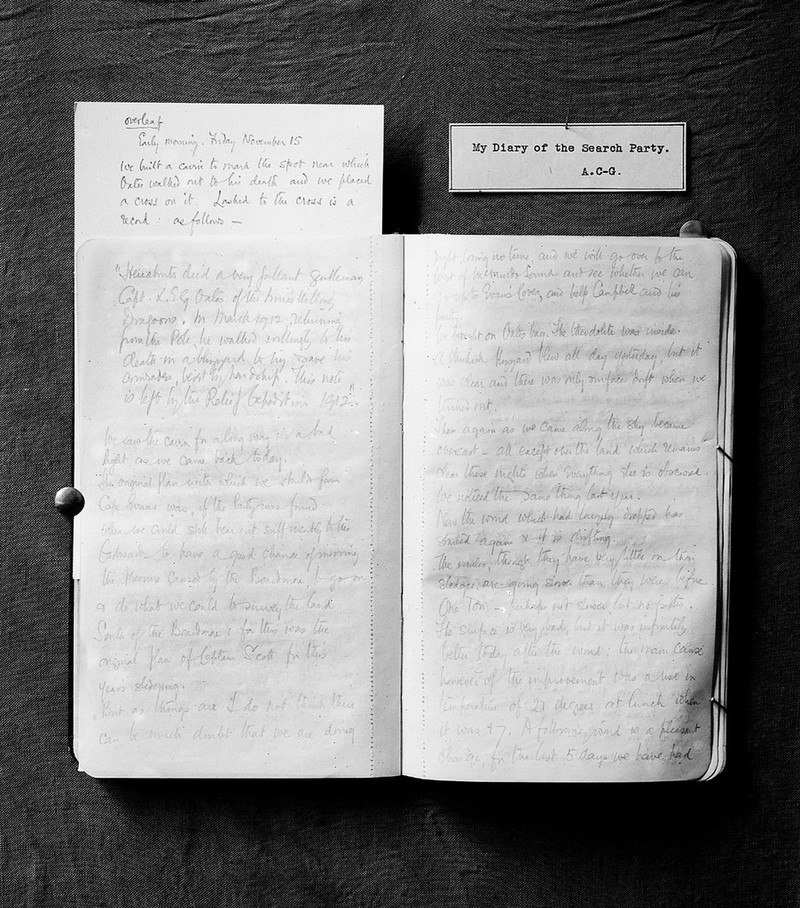 overleaf
Early morning. Friday November 15
We built a cairn to mark the spot near which
Oates walked out to his death and we placed
a cross on it. Lashed to the cross is a
record: as follows —
My Diary of the Search Party.
A.C-G.
"Hereabouts died a very gallant gentleman
Capt. L.E.G. Oates of the Inniskilling
Dragoons. In March 1912, returning
from the Pole, he walked willingly to his
death in a blizzard to try & save his
comrades, beset by hardship. This note
is left by the Relief Expedition 1912".
We saw the cairn for a long way in a bad
light as we came back today.
The original plan with which we started from
Cape Evans was, if the Party was found
where we could still bear out sufficiently to the
Eastward to have a good chance of missing
the pressure caused by the Beardmore, to go on
& do what we could to survey the land
South of the Beardmore: for this was the
original plan of Captain Scott for this
year's sledging.
But as things are I do not think there
can be much doubt that we are doing
right losing no time, and we will go over by the
of McMurdo Sound and see whether we can
go up to Evans Coves, and help Campbell and his
party.
We brought on Oates' bag. The theodolite was inside.
A thickish blizzard blew all day yesterday but it
was clear and there was only surface drift when we
turned out.
Then again as we came along the sky became
overcast — all except over the land which remains
clear these nights when everything else is obscured.
We noticed the same thing last year.
Now the wind which had largely dropped has
started again & it is drifting.
The mules, though they have very little on their
sledges, are going slower than they were before
One Ton — perhaps not slower but no faster.
The surface is very bad, but it was infinitely
better today after the wind: the main cause
however of the improvement was a rise in
temperature of 21 degrees at lunch when
it was +7. A following wind is a pleasant
change, for the last 5 days we have had